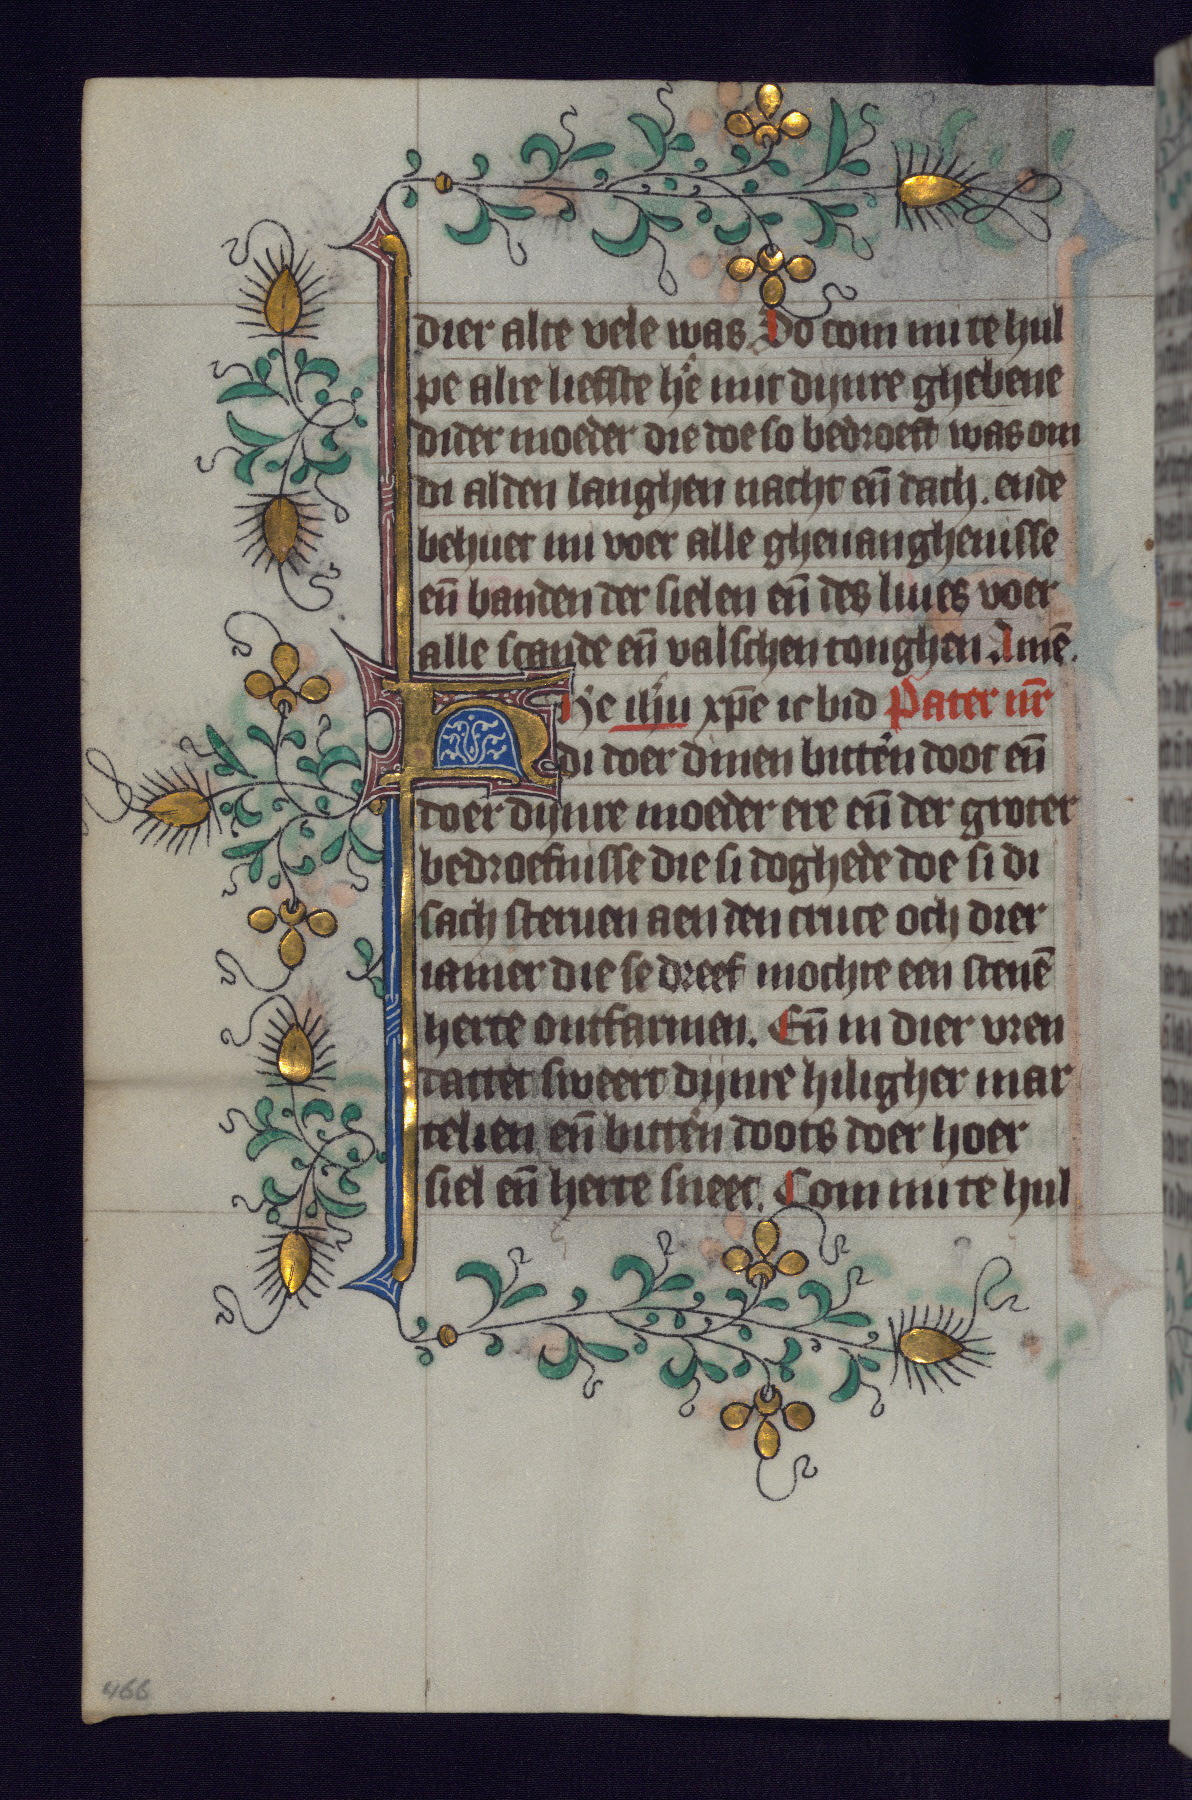 dier alte vele was. Do com mi te hul
pe alre liefste h̄e mit dijnre ghebene
dider moeder die doe so bedroeft was om
di alden langhen nacht en̄ dach. ende
behuet mi voer alle ghevanghenisse
en̄ banden der sielen en̄ des lives voer
alle scande en̄ valschen tonghen Amē.
H̄e ih̄u xp̄e ic bid Pater nr̄
di doer dinen bittēn doot en̄
doer dijnre moeder ere en̄ der groter
bedroefnisse die si doghede doe si di
sach sterven aen den cruce och dier
iamer die se dreef mochte een stenē
herte ontfarmen. En̄ in dier vren
dattet sweert dijnrē hiligher mar
telien en̄ bittēn doots doer hoer
siel en̄ herte sneet. Com mi te hul
466